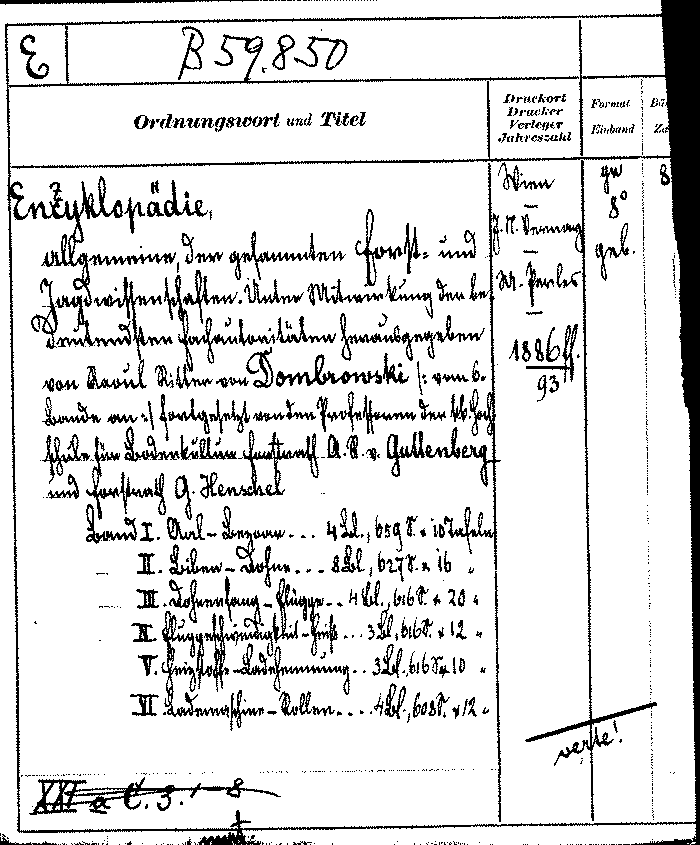 E
B 59.850
Ordnungswort und Titel
Druckort
Drucker
Verleger
Jahreszahl
Format
Einband
Enzyklopädie,
allgemeine, der gesammten Forst- und
Jagdwissenschaften. Unter Mitwirkung der be-
deutendsten Fachautoritäten herausgegeben
von Raoul Ritter von Dombrowski /: vom 6.
Bande an :/ fortgesetzt von den Professoren der kk. Hoch
schule für Bodenkultur Forstrath A. R. v. Guttenberg
und Forstrath G. Henschel
Band I. Aal – Bezoar . . . 4 Bl., 659 S. 10 Tafeln
" II. Biber – Dohne . . . 8 Bl., 627 S. 16 "
" III. Dohnenfang – Flügge . . 4 Bl., 616 S. 20 "
Fluggeschwindigkeit – . . . 3 Bl., 616 S. 12 "
V. Heizstoffe – Ladehemmung . . 3 Bl., 616 S. 10 "
VI. Lademaschine – Rollen . . . . 4 Bl., 608 S. 12 "
Wien
M. Perles
1886 ff.
93
8°
geb.
8
verte!
XXI a C. 3. 1–8